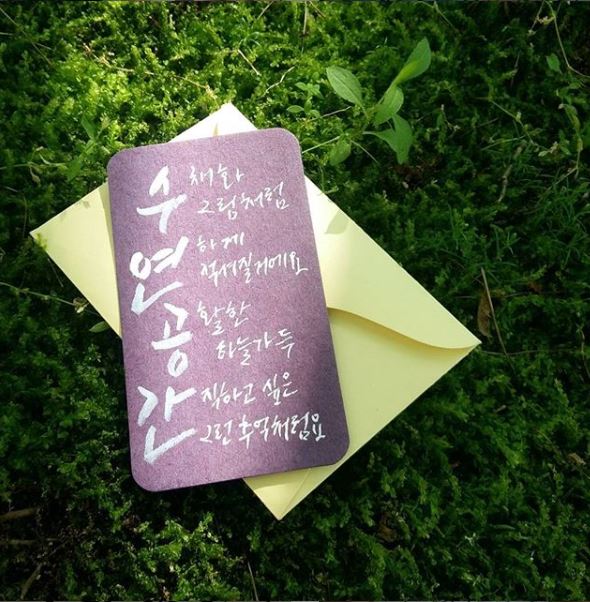 수채화
그림처럼
연하게
적셔질거에요
공활한
하늘가득
간직하고 싶은
그런 추억처럼요